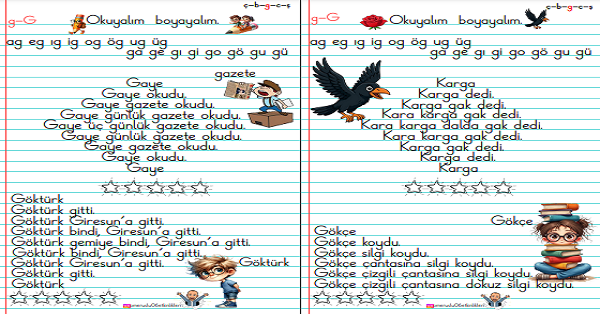 ç-b-g-c-ş
g-G Okuyalım boyayalım.
ag eg ıg ig og ög ug üg
ga ge gı gi go gö gu gü
gazete
Gaye
Gaye okudu.
Gaye gazete okudu.
Gaye günlük gazete okudu.
Gaye üç günlük gazete okudu.
Gaye günlük gazete okudu.
Gaye gazete okudu.
Gaye okudu.
Gaye
Göktürk
Göktürk gitti.
Göktürk Giresun'a gitti.
Göktürk bindi, Giresun'a gitti.
Göktürk gemiye bindi, Giresun'a gitti.
Göktürk bindi, Giresun'a gitti.
Göktürk Giresun'a gitti.
Göktürk
Göktürk gitti.
Göktürk
ç-b-g-c-ş
g-G Okuyalım boyayalım.
ag eg ıg ig og ög ug üg
ga ge gı gi go gö gu gü
Karga
Karga dedi.
Karga gak dedi.
Kara karga gak dedi.
Kara karga dalda gak dedi.
Kara karga gak dedi.
Karga gak dedi.
Karga dedi.
Karga
Gökçe
Gökçe
Gökçe koydu.
Gökçe silgi koydu.
Gökçe çantasına silgi koydu.
Gökçe çizgili çantasına silgi koydu.
Gökçe çizgili çantasına dokuz silgi koydu.